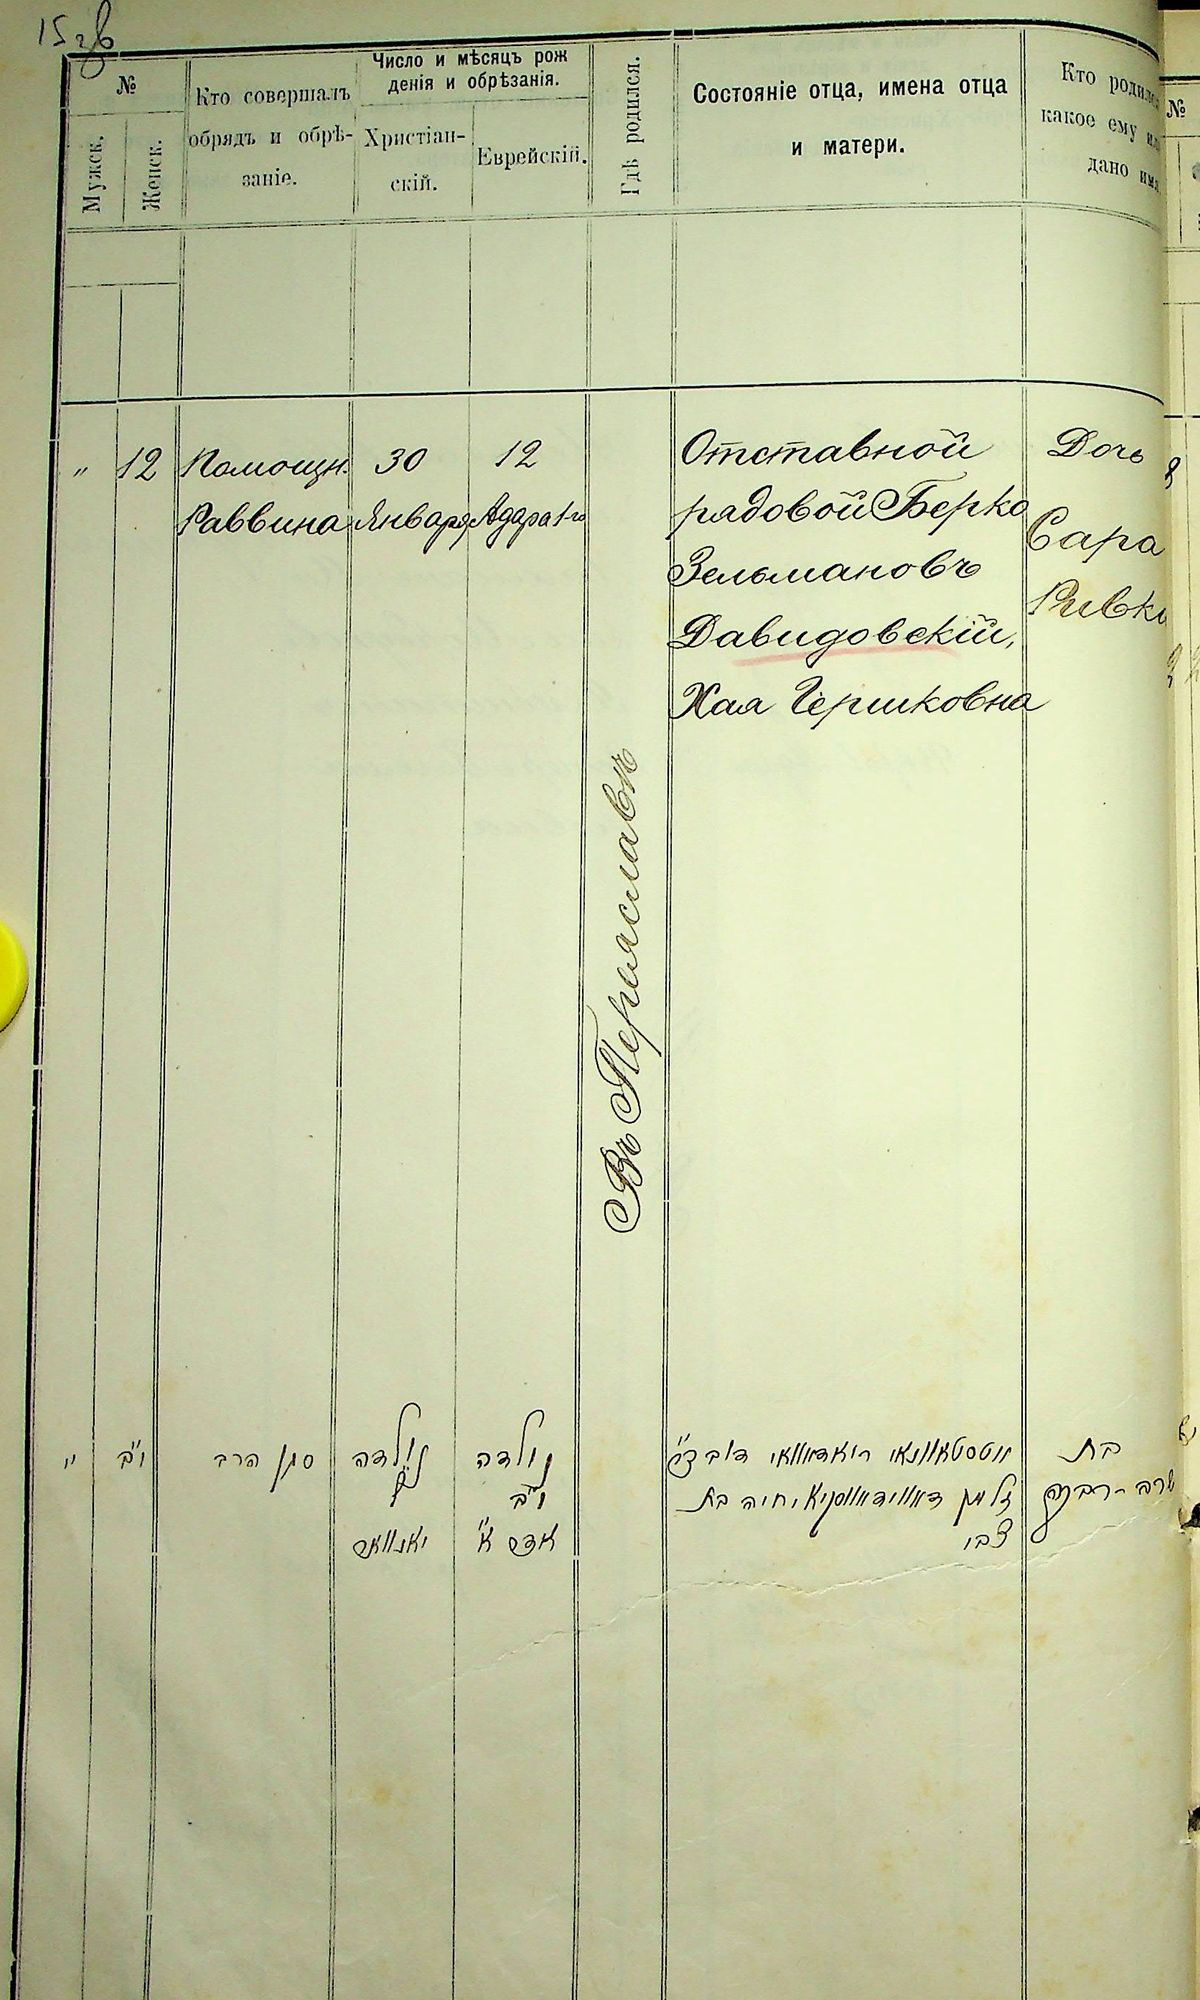 15
№
Мужск.
Женск.
Кто совершалъ
обрядъ и обрѣ-
заніе.
Число и мѣсяцъ рож
денія и обрѣзанія.
Христіан-
скій.
Еврейскій.
Гдѣ родился.
Состояніе отца, имена отца
и матери.
Кто родился
какое ему или
дано имя
№
" 12
Помощн.
Раввина
30
Января
12
Адара 1-го
Въ Переяславѣ
Отставной
рядовой Берко
Зельмановъ
Давидовскій,
Хая Гершковна
Дочь
Сара
Ривка
"
י״ב
סגן הרב
נולדה
ל׳
יאנוואר
נולדה
י״ב
אדר א׳
דוב
זלמן דאווידאווסקיא, חיה בת
צבי
בת
שרה-רבקה